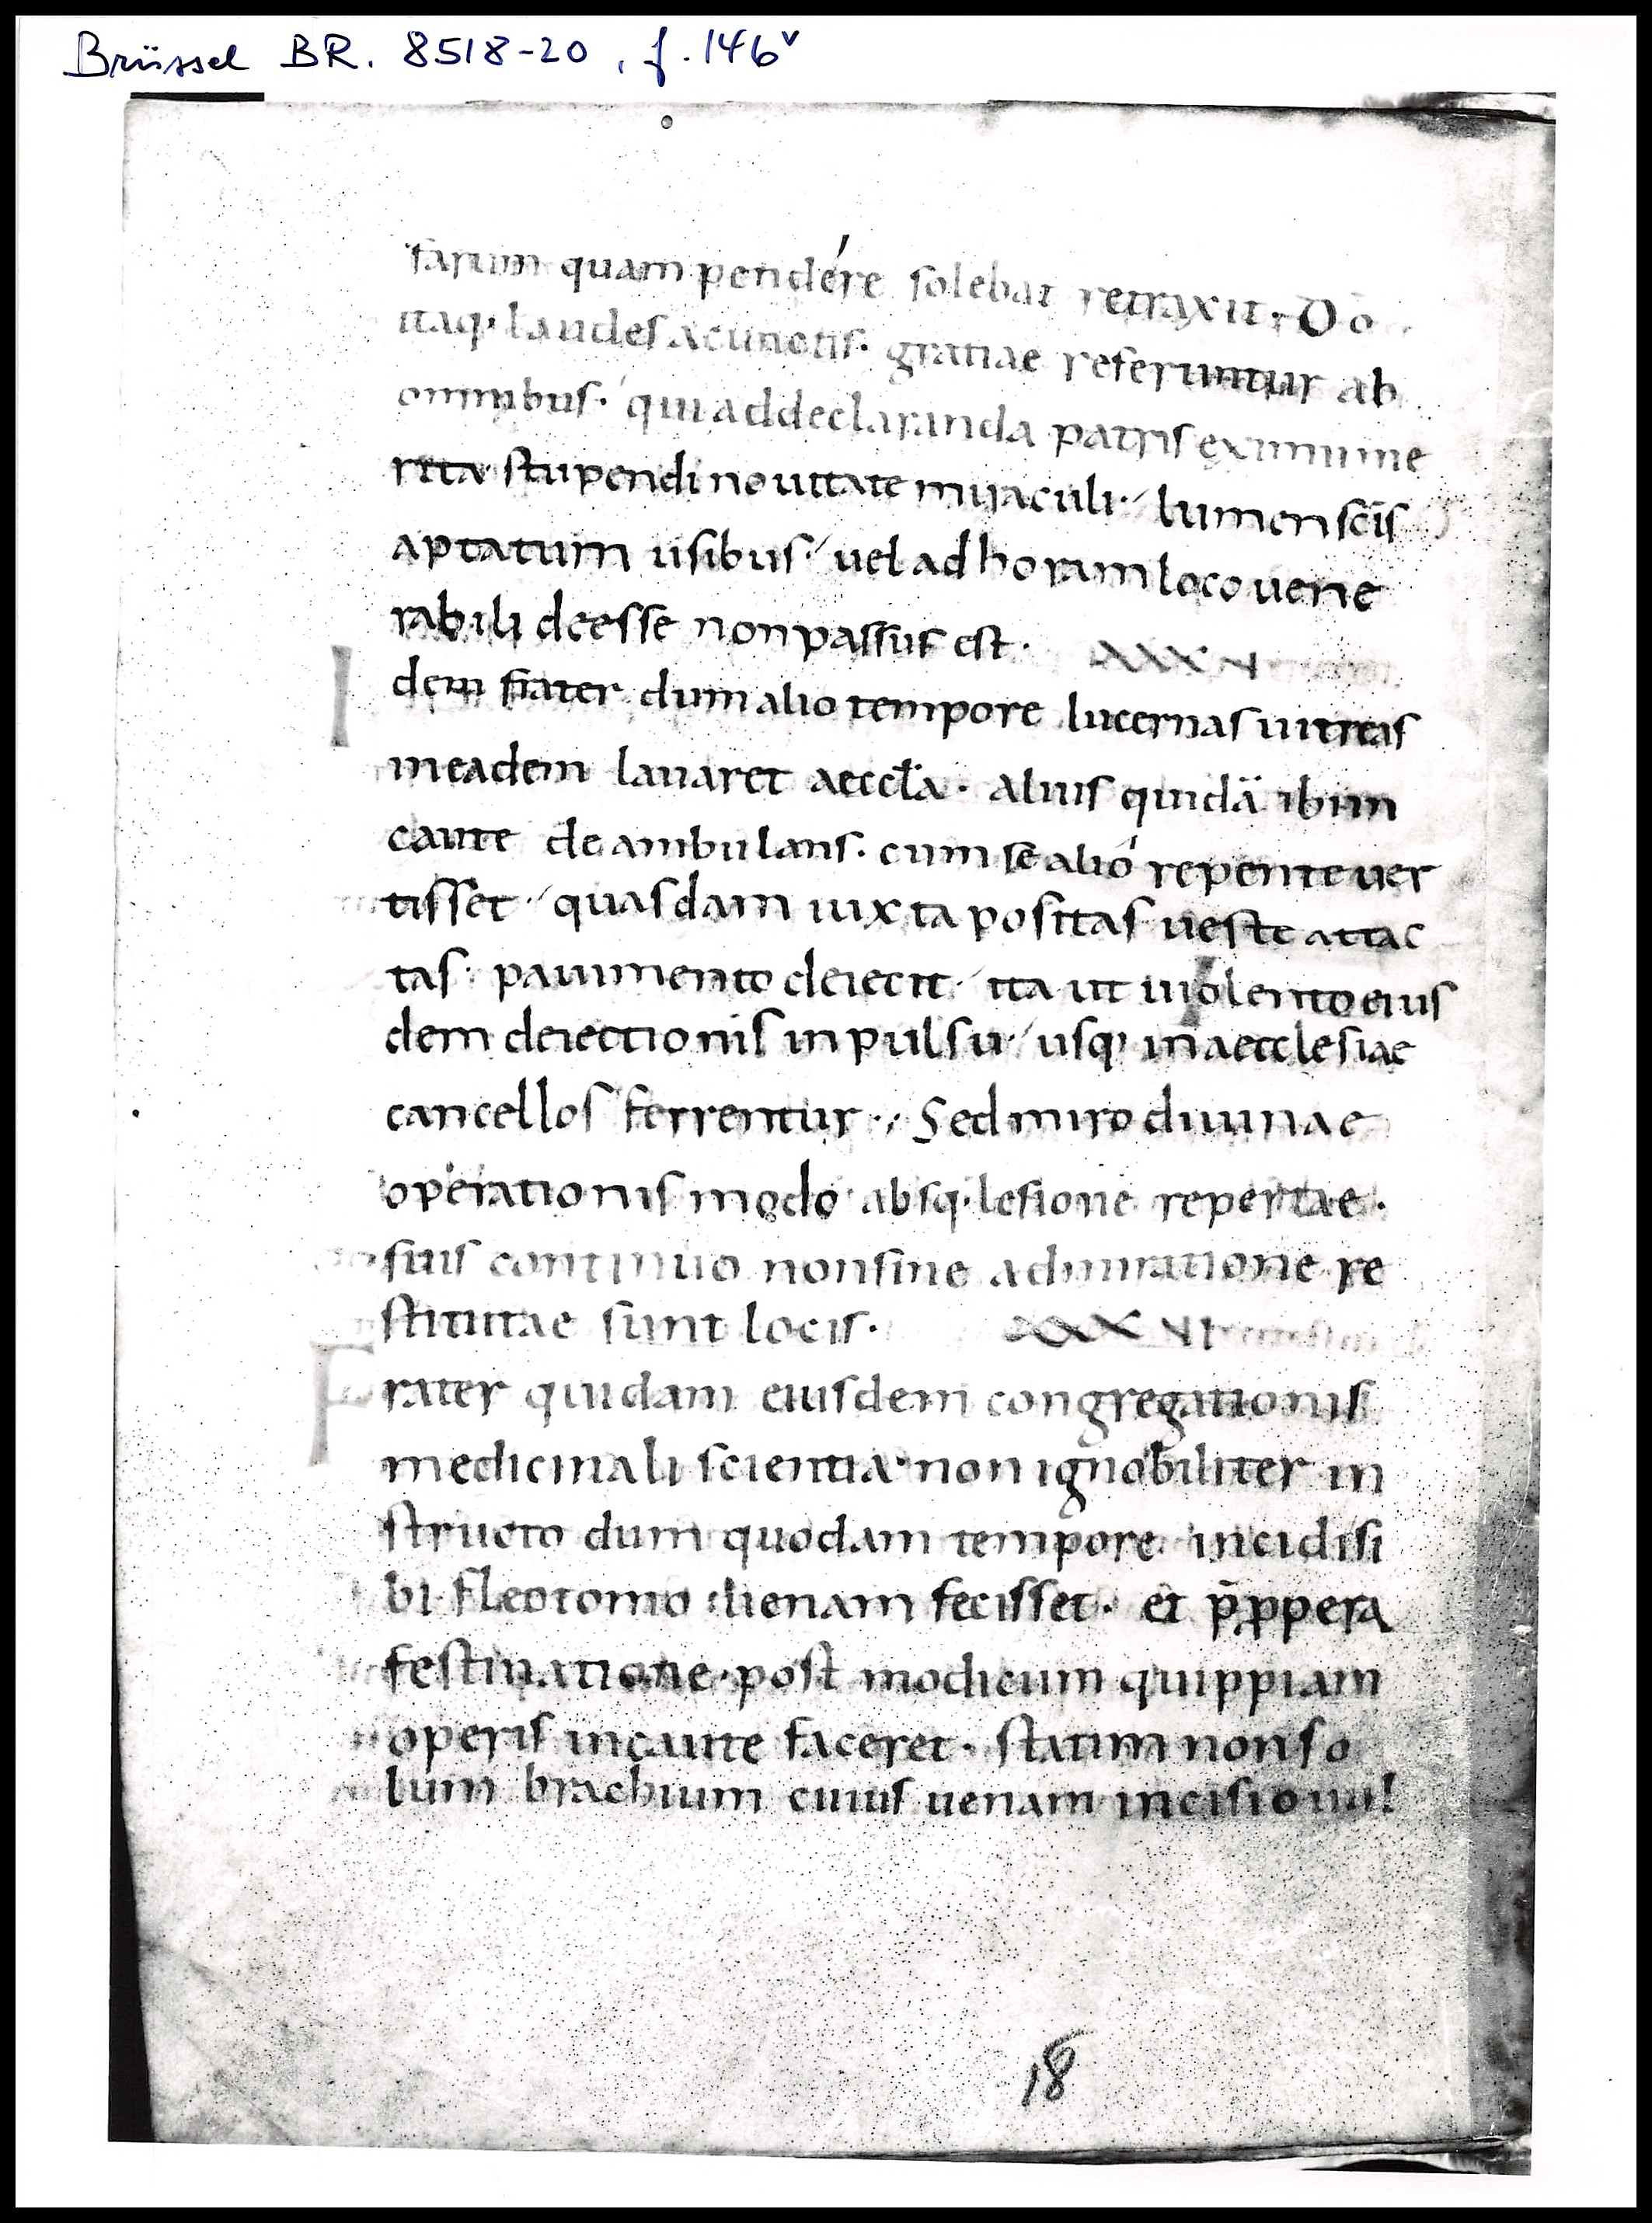 Brüssel BR. 8518-20, f. 146v
farum quam pendére solebat retraxit. Dō
itaq; laudes a cunctis. gratiae referuntur ab
omnibus. qui ad declaranda patris eximii me
rita. stupendi nouitate miraculi. lumen scīs
aptatum usibus. uel ad horam loco uene
rabili deesse non passus est. XXXV
Idem frater dum alio tempore lucernas uitreas
in eadem lauaret aeccła. alius quidā ibi in
caute deambulans. cum se alió repente uer
tisset. quasdam iuxta positas ueste attac
tas. pauimento deiecit. ita ut uiolento eius
dem deiectionis inpulsu. usq; in aecclesiae
cancellos ferrentur. Sed miro diuinae
operationis modo absq; lesione repertae.
suis continuo non sine admiratione re
stitutae sunt locis. XXXVI
Frater quidam eiusdem congregationis
medicinali scientia non ignobiliter in
structo dum quodam tempore incidi si
bi fleotomo uenam fecisset. et p̄ppera
festinatione. post modicum quippiam
operis incaute faceret. statim non so
lum brachium cuius uenam incisio uul
18